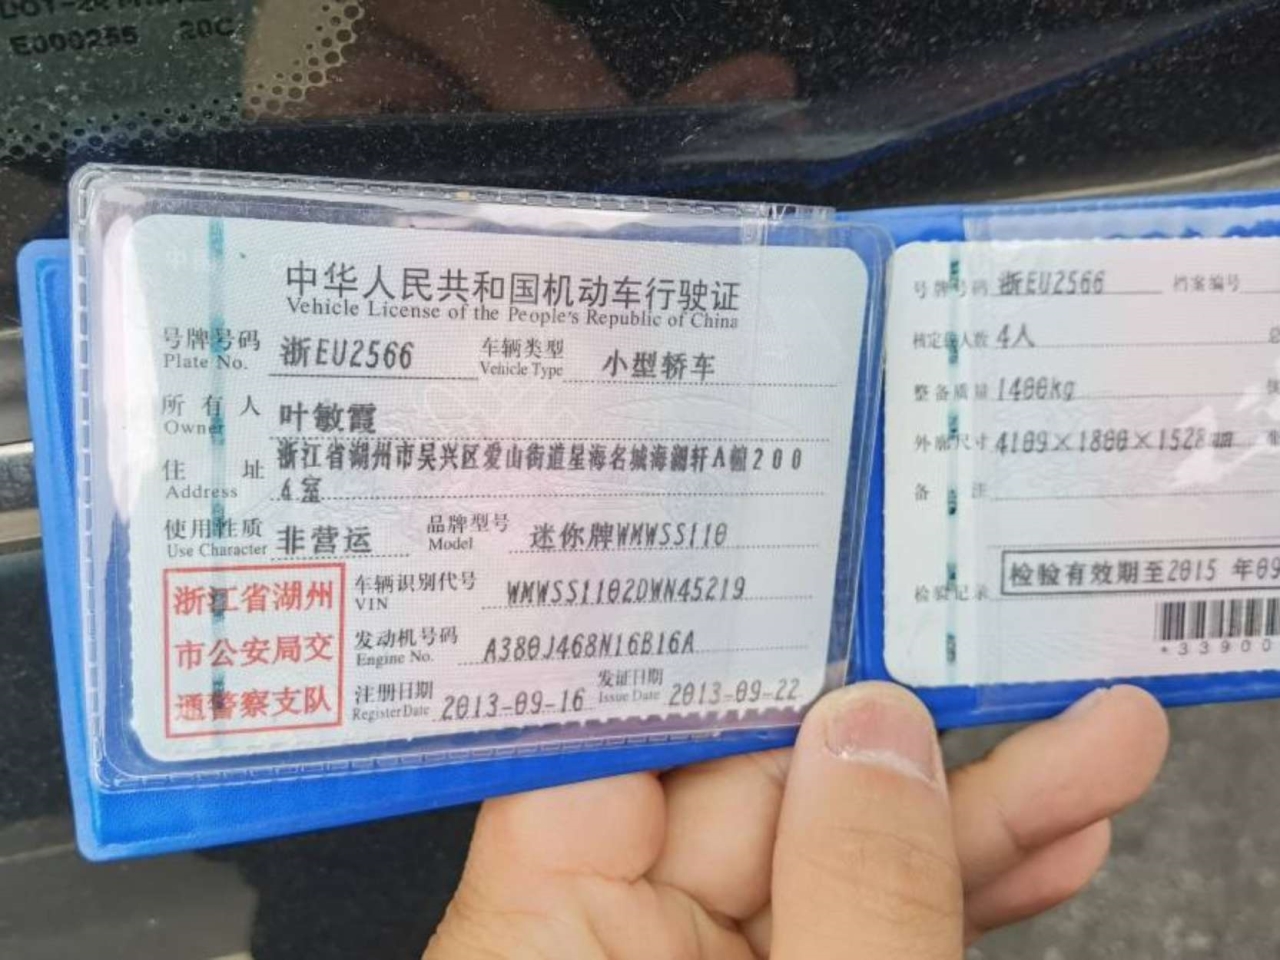 E000255 20C
中华人民共和国机动车行驶证
Vehicle License of the People's Republic of China
号牌号码 浙EU2566 车辆类型 小型轿车
Plate No. Vehicle Type
所有人 叶敏霞
Owner
住址 浙江省湖州市吴兴区爱山街道星海名城海澜轩A幢200
Address 4室
使用性质 非营运 品牌型号 迷你牌WMWSS110
Use Character Model
浙江省湖州
市公安局交
通警察支队
车辆识别代号 WMWSS1102DWN45219
VIN
发动机号码 A380J468N16B16A
Engine No.
注册日期 2013-09-16 发证日期 2013-09-22
Register Date Issue Date
号牌号码 浙EU2566 档案编号
核定载人数 4人
整备质量 1400kg
外廓尺寸 4109×1800×1528mm
备注
检验记录 检验有效期至2015 年09
*33900